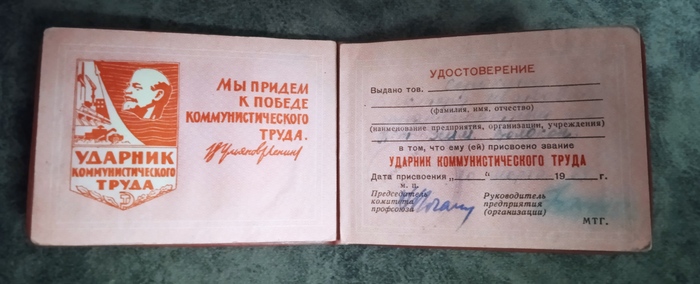 УДАРНИК
КОММУНИСТИЧЕСКОГО
ТРУДА
МЫ ПРИДЕМ
К ПОБЕДЕ
КОММУНИСТИЧЕСКОГО
ТРУДА.
В Ульянов (Ленин)
УДОСТОВЕРЕНИЕ
Выдано тов.
(фамилия, имя, отчество)
(наименование предприятия, организации, учреждения)
в том, что ему (ей) присвоено звание
УДАРНИК КОММУНИСТИЧЕСКОГО ТРУДА
Дата присвоения „ " 19 г.
М. П.
Председатель
комитета
профсоюза
Руководитель
предприятия
(организации)
МТГ.